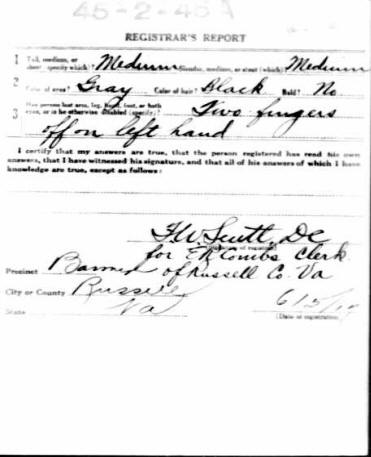 45-2-45 A
REGISTRAR'S REPORT
1 Tall, medium, or short (specify which)? Medium Slender, medium, or stout (which)? Medium
2 Color of eyes? Gray Color of hair? Black Bald? No
3 Has person lost arm, leg, hand, foot, or both
eyes, or is he otherwise disabled (specify)? Two fingers
off on left hand
I certify that my answers are true, that the person registered has read his own
answers, that I have witnessed his signature, and that all of his answers of which I have
knowledge are true, except as follows:
Scutt, DC
(Signature of registrar)
for Combs Clerk
Precinct of Russell Co. Va
City or County Russell
State Va
6/5/17
(Date of registration)